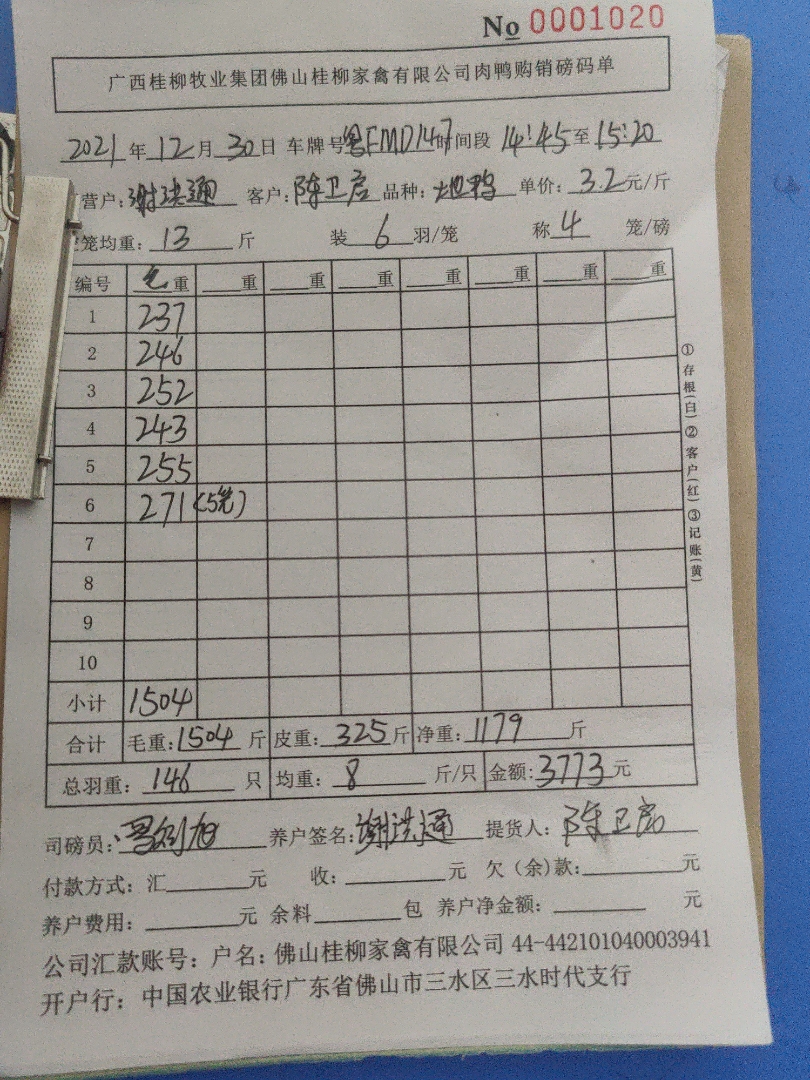 No 0001020
广西桂柳牧业集团佛山桂柳家禽有限公司肉鸭购销磅码单
2021年12月30日 车牌号粤FMD147时间段 14:45至15:20
营户:谢洪通 客户:陈卫启 品种:土也鸭 单价:3.2元/斤
笼均重:13斤 装6羽/笼 称4笼/磅
编号 毛重 重 重 重 重 重 重 重
1 237
2 246
3 252
4 243
5 255
6 271(5笼)
7
8
9
10
小计 1504
合计 毛重:1504斤 皮重:325斤 净重:1179斤
总羽重:146只 均重:8斤/只 金额:3773元
司磅员: 养户签名:谢洪通 提货人:陈卫启
付款方式:汇 元 收: 元 欠(余)款: 元
养户费用: 元 余料 包 养户净金额: 元
公司汇款账号:户名:佛山桂柳家禽有限公司 44-442101040003941
开户行:中国农业银行广东省佛山市三水区三水时代支行
①存根(白)②客户(红)③记账(黄)